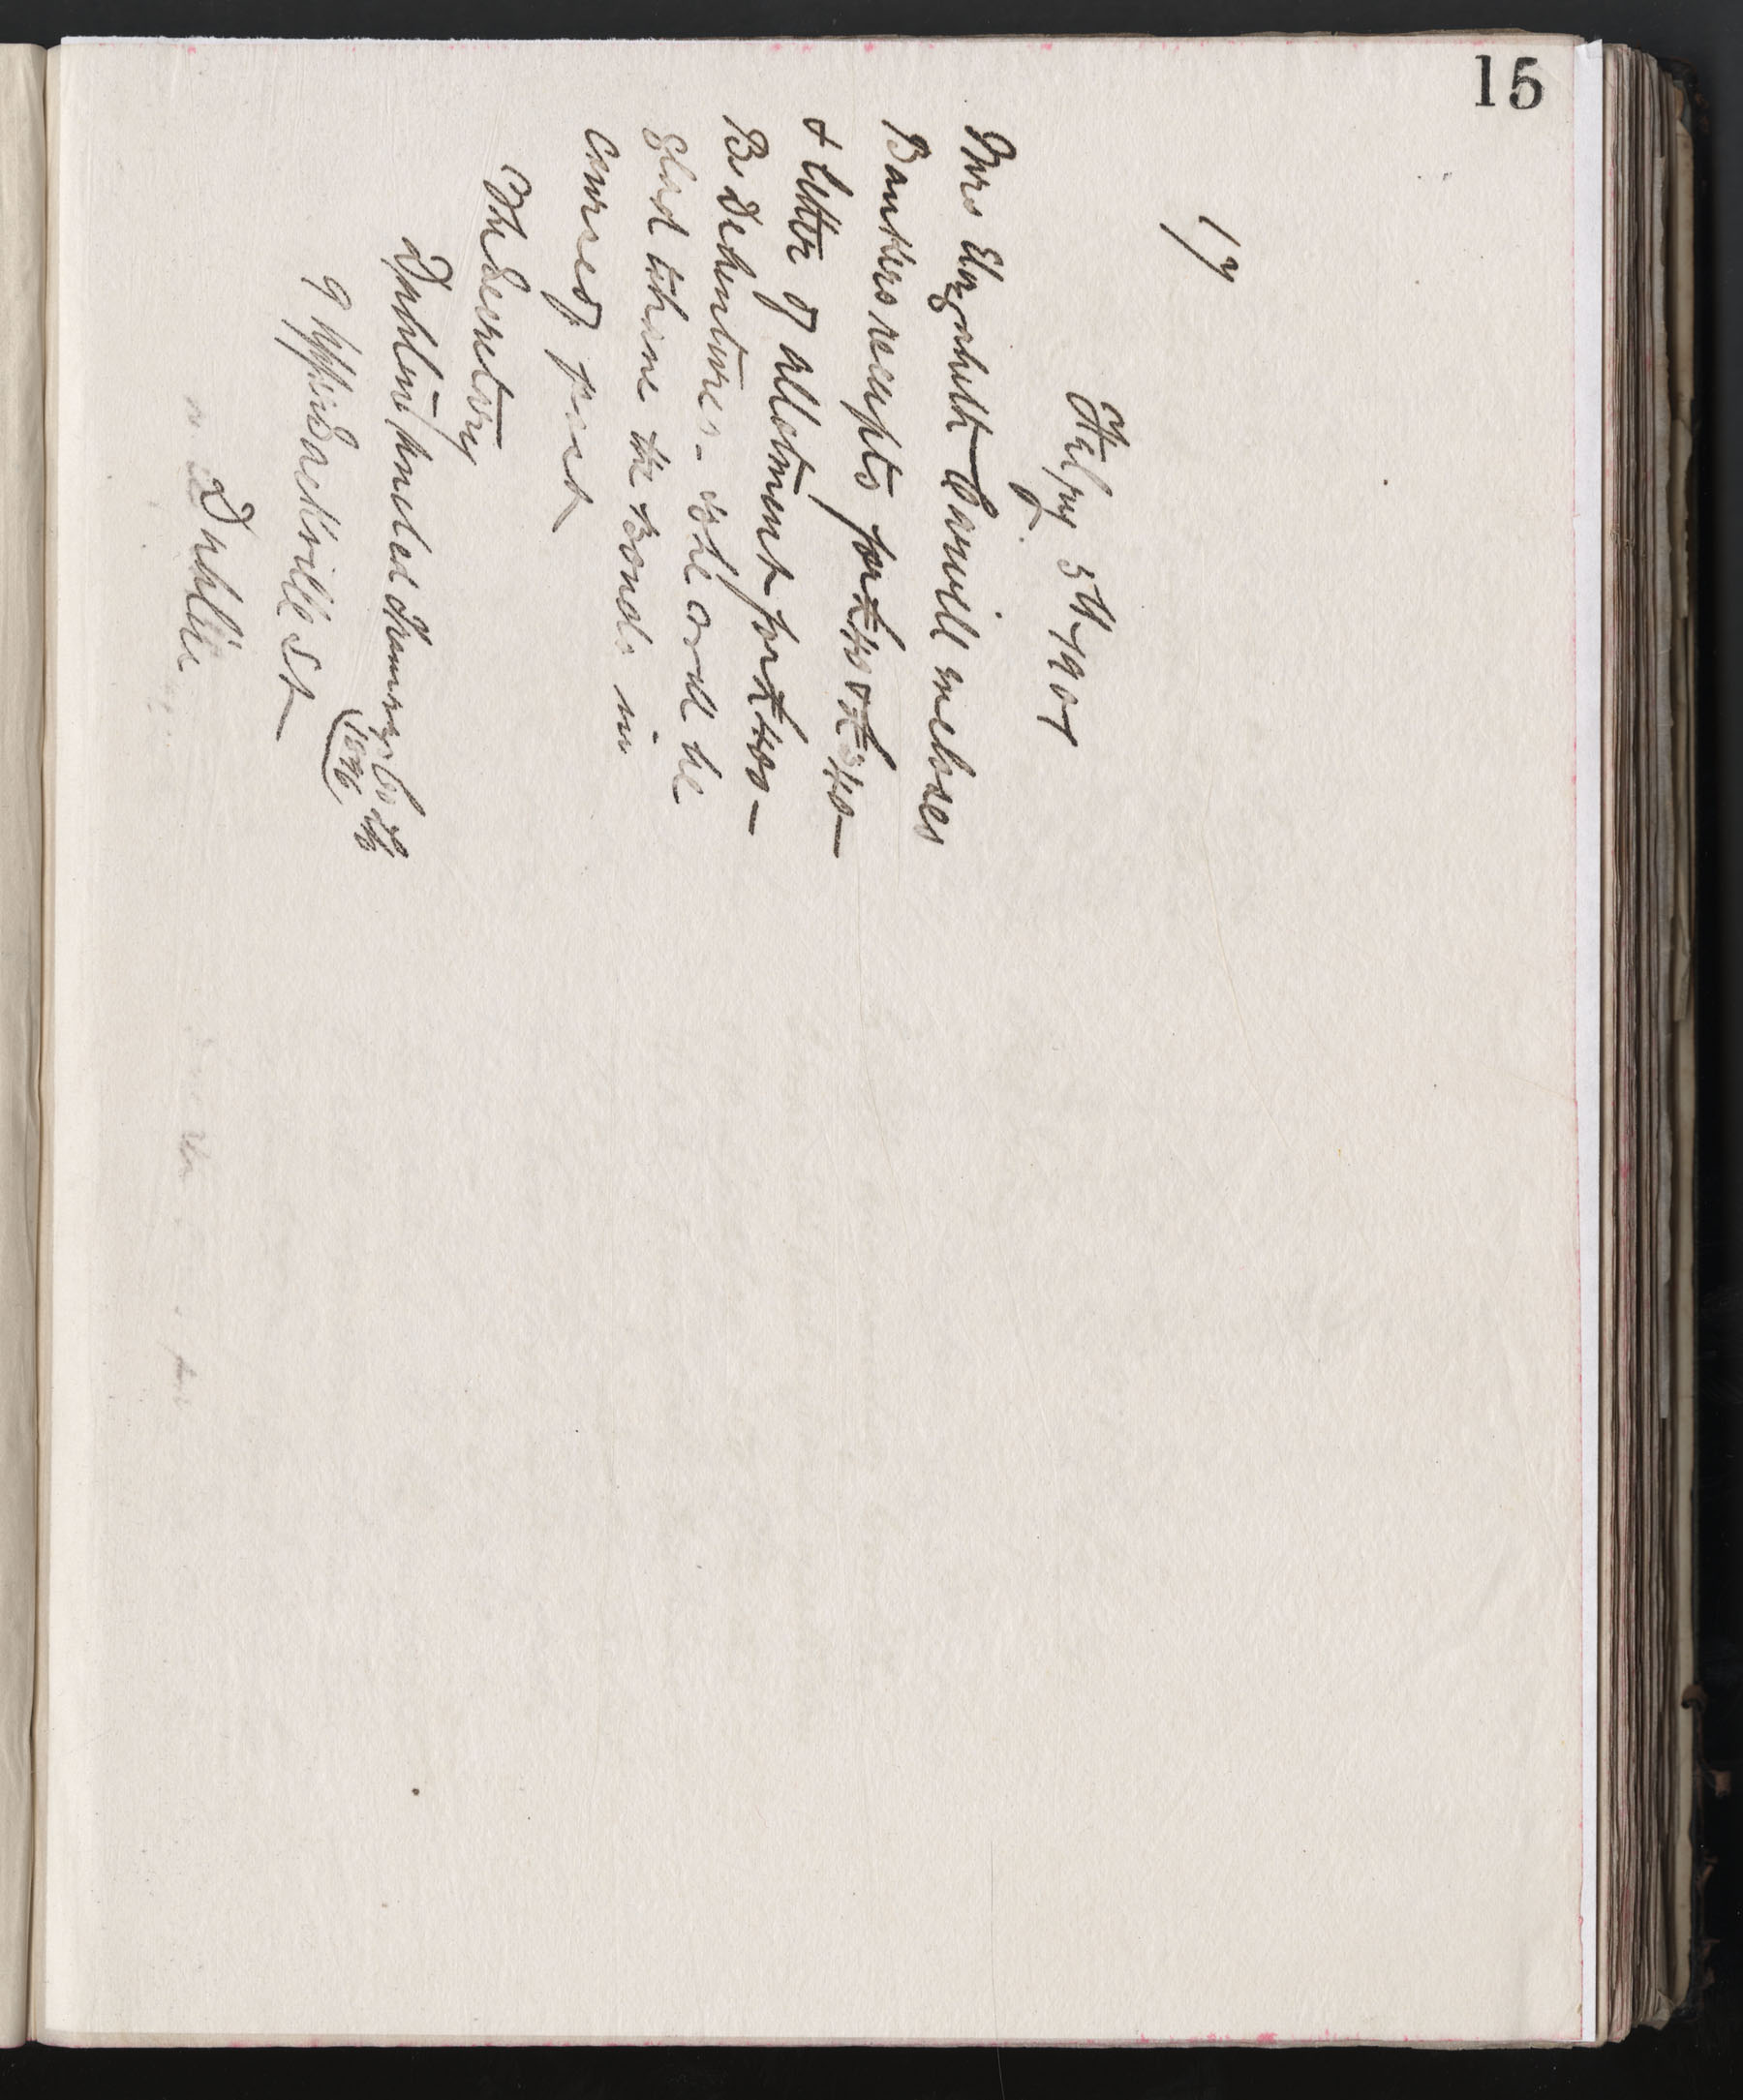 15
17
Italy 5th 1901
Mrs Elizabeth Carvill encloses
Bankers receipts for £40 & £340
& letter of allotment for £400 –
B Debentures – She will be
glad to have the Bonds in
course of post
The Secretary
Dublin United Tramways Co Ltd
(1896)
9 Upper Sackville St
Dublin